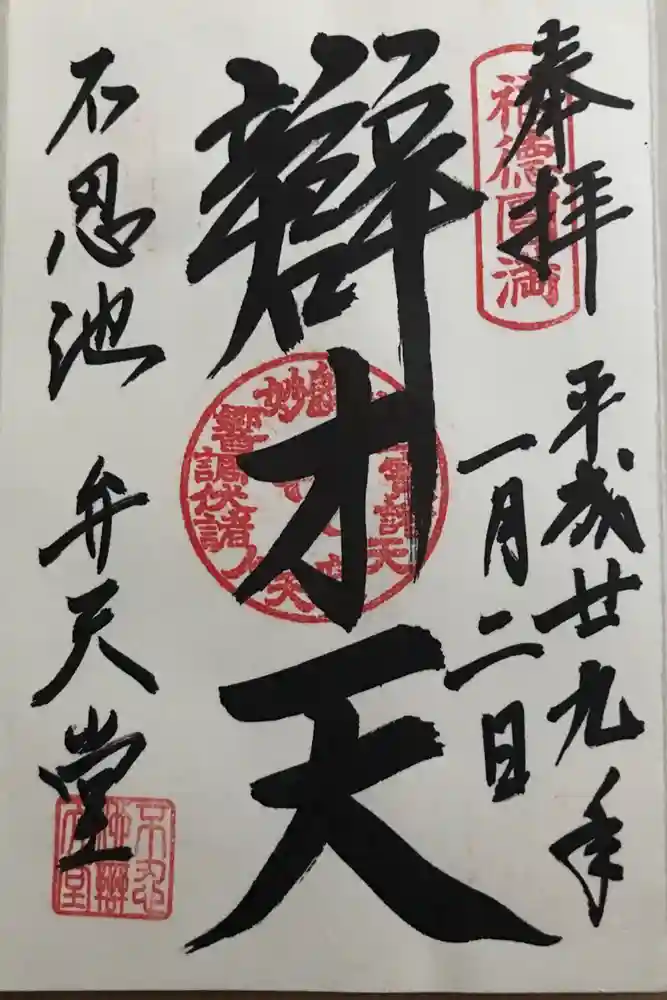 奉拝
福徳円満
平成廿九年
一月二日
辯才天
不忍池 弁天堂